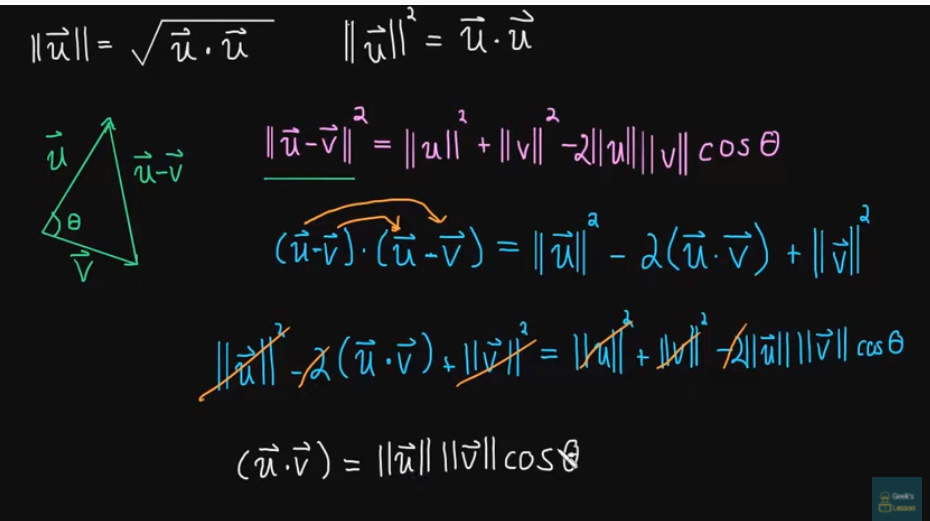 ‖u⃗‖ = √(u⃗ · u⃗)   ‖u⃗‖² = u⃗ · u⃗
‖u⃗-v⃗‖² = ‖u‖² + ‖v‖² -2‖u‖‖v‖ cos θ
u⃗
u⃗-v⃗
θ
v⃗
(u⃗-v⃗) · (u⃗-v⃗) = ‖u⃗‖² - 2(u⃗ · v⃗) + ‖v⃗‖²
‖u⃗‖² -2(u⃗ · v⃗) + ‖v⃗‖² = ‖u‖² + ‖v‖² -2‖u⃗‖‖v⃗‖ cos θ
(u⃗ · v⃗) = ‖u⃗‖ ‖v⃗‖ cos θ
Geek's
Lesson